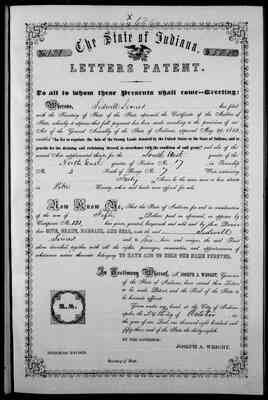 The State of Indiana,
LETTERS PATENT.
To all to whom these Presents shall come—Greeting:
Whereas, has filed
with the Secretary of State of the State, aforesaid, the Certificate of the Auditor of
State, whereby it appears that full payment has been made according to the provisions of an
Act of the General Assembly of the State of Indiana, approved May 29, 1852,
entitled "An Act to regulate the Sale of the Swamp Lands donated by the United States to the State of Indiana, and to
provide for the draining and reclaiming thereof, in accordance with the condition of said grant;" and also of the
several Acts supplemental thereto, for the South West quarter of the
North East quarter of Section No. in Township
No. 3 North of Range No. 7 West containing
Forty Acres, be the same more or less, situate
in County, when said lands were offered for sale.
Now Know Ye, That the State of Indiana, for and in consideration
of the sum of Dollars paid as aforesaid, as appears by
Certificate No. has given, granted, bargained and sold, and by these Presents
does GIVE, GRANT, BARGAIN, AND SELL, unto the said
and to heirs and assigns, the said Tract
above described, together with all the rights, privileges, immunities, and appurtenances of
whatsoever nature thereunto belonging TO HAVE AND TO HOLD THE SAME FOREVER.
In Testimony Whereof, I, JOSEPH A. WRIGHT, Governor
of the State of Indiana, have caused these Letters
to be made Patent, and the Seal of the State to
be hereunto affixed.
Given under my hand, at the City of Indian-
apolis, the day of October in
the year of our Lord, one thousand eight hundred and
fifty-three and of the State the thirty-eighth
BY THE GOVERNOR:
JOSEPH A. WRIGHT.
Secretary of State.